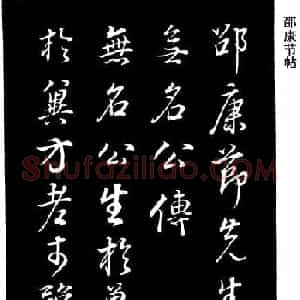 邵康节帖
邵康節先生
無名公傳
無名公生於冀
於冀方老於豫
Shufaziliao.COM